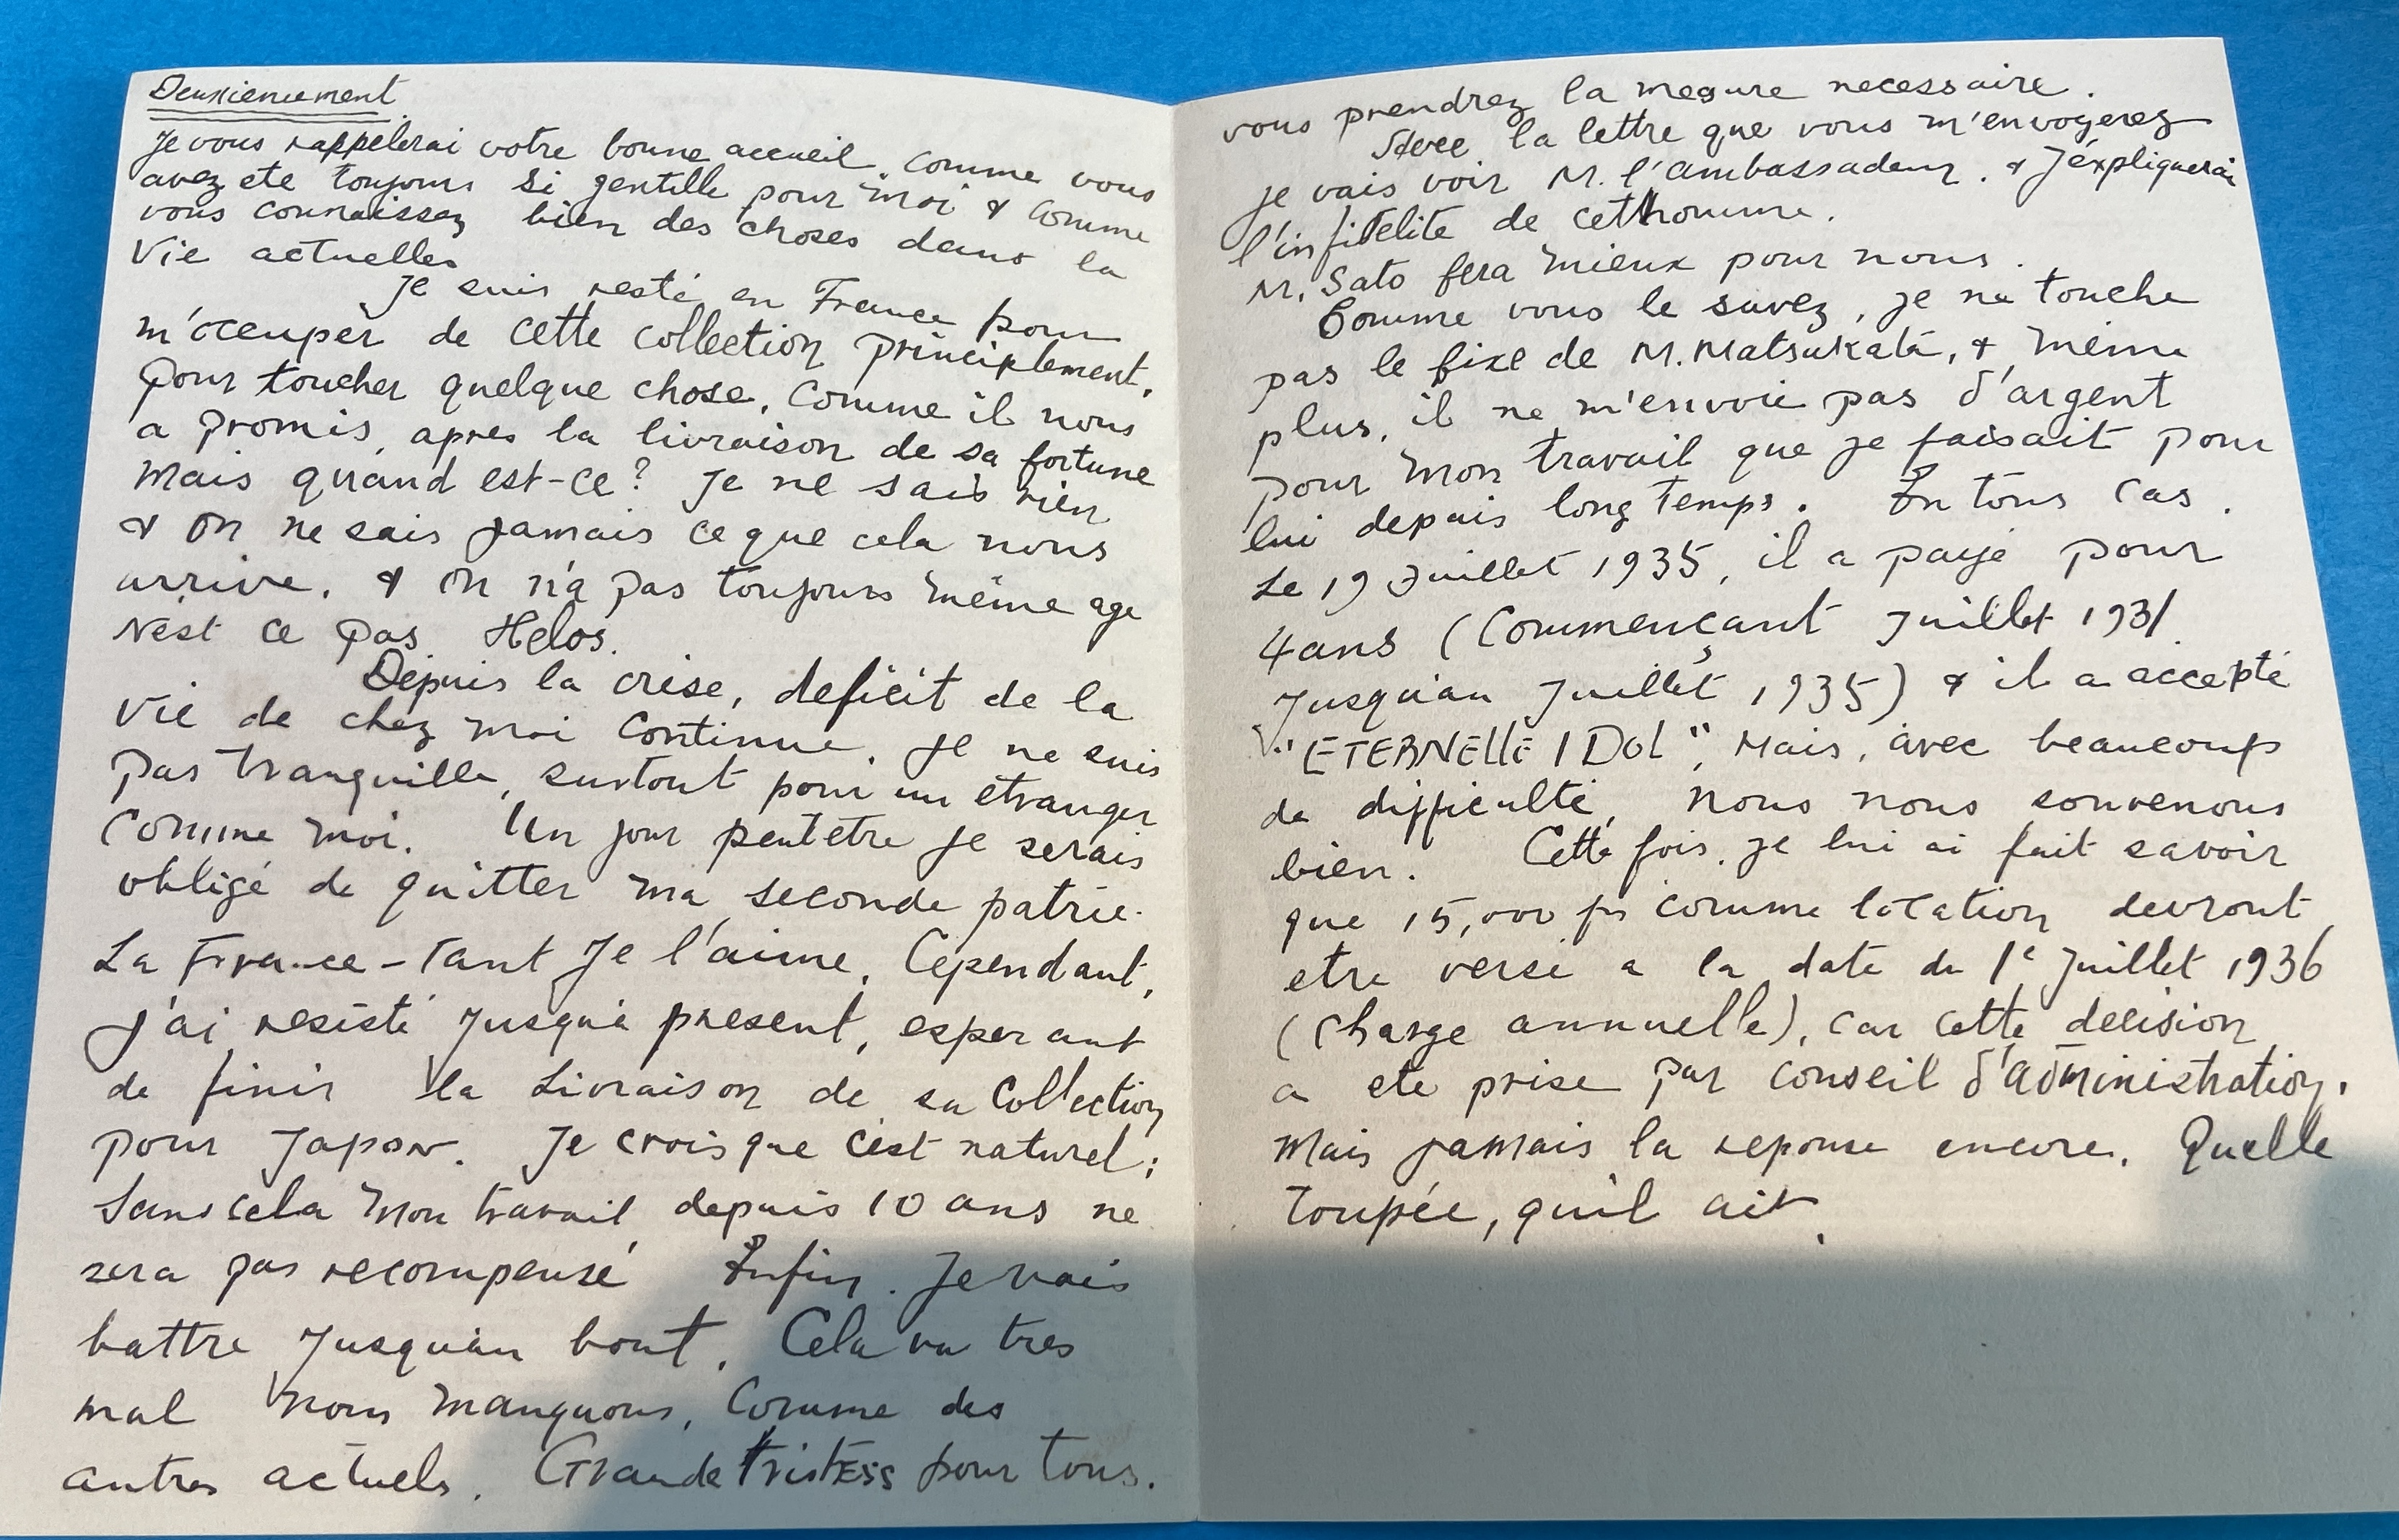 Deuxiencement
Je vous rappelerai votre bonne accueil. Comme vous
avez ete toujours si gentille pour moi & comme
vous connaissez bien des choses dans la
Vie actuelles
Je suis resté en France pour
m'occuper de cette collection principlement,
pour toucher quelque chose, comme il nous
a promis, apres la livraison de sa fortune
Mais quand est-ce? Je ne sais rien
& on ne sais jamais ce que cela nous
arrive. & on n'a pas toujours même age
N'est ce pas Helos.
Depuis la crise, deficit de la
Vie de chez moi continue. Je ne suis
pas tranquille, surtout pour un etranger
comme moi. Un jour peutetre je serais
obligé de quitter ma seconde patrie.
La France - tant Je l'aime. Cependant,
J'ai resisté Jusqu'à present, esperant
de finir la Livraison de sa Collection
pour Japon. Je crois que c'est naturel;
Sans cela mon travail depuis 10 ans ne
sera pas recompensé Enfin. Je vais
battre Jusqu'au bout. Cela va tres
mal Nous manquons, comme des
autres actuels. Grande tristess pour tous.
vous prendrez la mesure necessaire.
Avec la lettre que vous m'envoyerez
je vais voir M. l'ambassadeur. & J'éxpliquerai
l'infidelite de cethomme.
M. Sato fera mieux pour nous.
Comme vous le savez, je ne touche
pas le fixe de M. Matsukata, & même
plus, il ne m'envoie pas d'argent
pour mon travail que je faisait pour
lui depuis long temps. En tous cas.
Le 19 Juillet 1935, il a payé pour
4 ans (Commençant Juillet 1931
Jusqu'au Juillet 1935) & il a accepté
"ETERNELLE IDOL", Mais, avec beaucoup
de difficulté, nous nous souvenons
bien. Cette fois, je lui ai fait savoir
que 15,000 frs comme location devront
etre versé a la date du 1e Juillet 1936
(Charge annuelle), car cette decision
a ete prise par conseil d'administration.
Mais jamais la reponse encore. Quelle
toupée, qu'il ait.